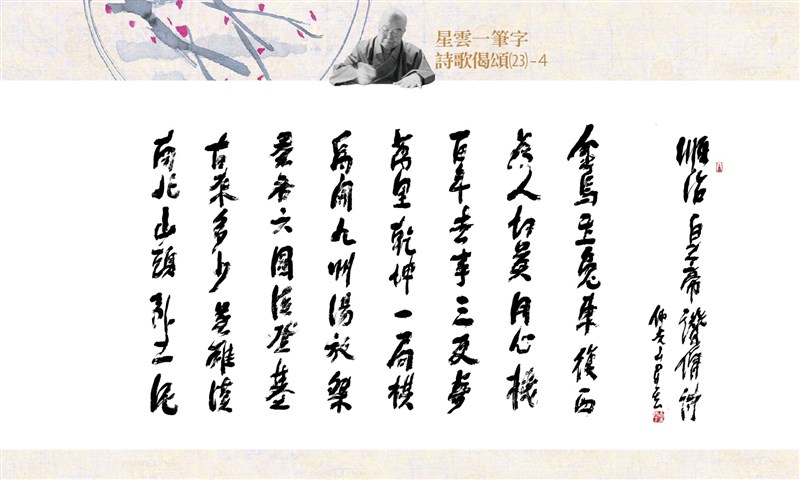 星雲一筆字
詩歌偈頌(23)-4
順治皇帝讚僧詩
佛光山星雲
金烏玉兔東復西
為人切莫用心機
百年世事三更夢
萬里乾坤一局棋
禹開九州湯放桀
秦吞六國漢登基
古來多少英雄漢
南北山頭臥土泥